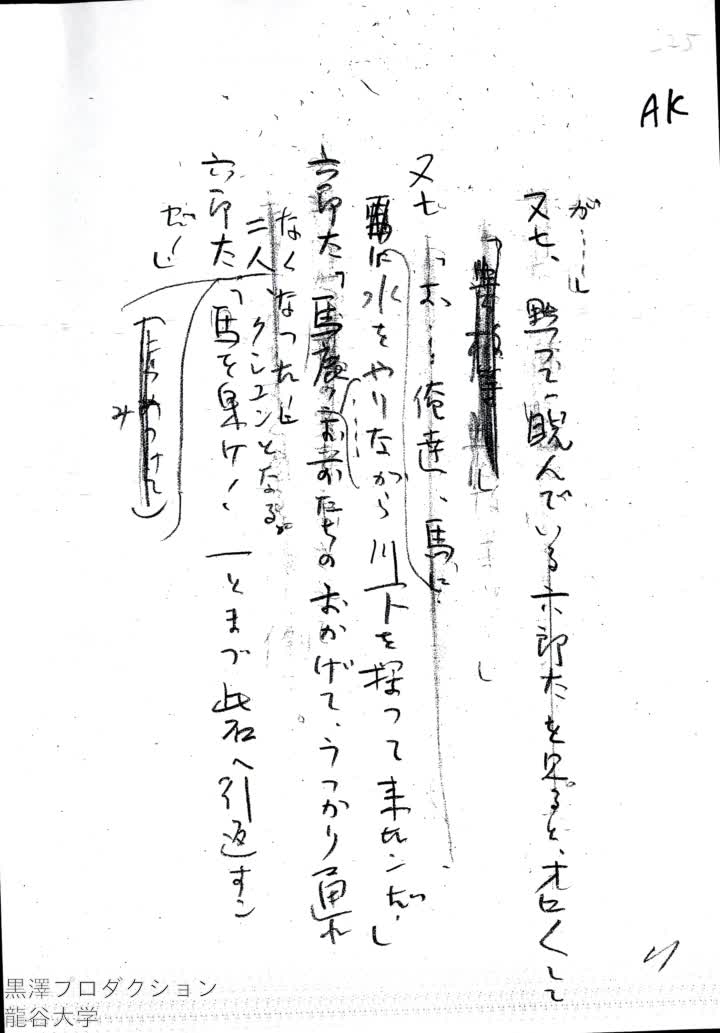 -25
AK
が……」
又七、黙つて、睨んでいる六郎太を見ると、オロくして
「
」
又七「お…俺達、馬に
水をやりながら川下を探つて来たンだ」
六郎太「馬鹿ッお前たちのおかげで、うつかり通れ
なくなつた」
二人、クシュンとなる。
六郎太「馬を曳け！ 一とまづ砦へ引返すン
だ！」
み
黒澤プロダクション
龍谷大学